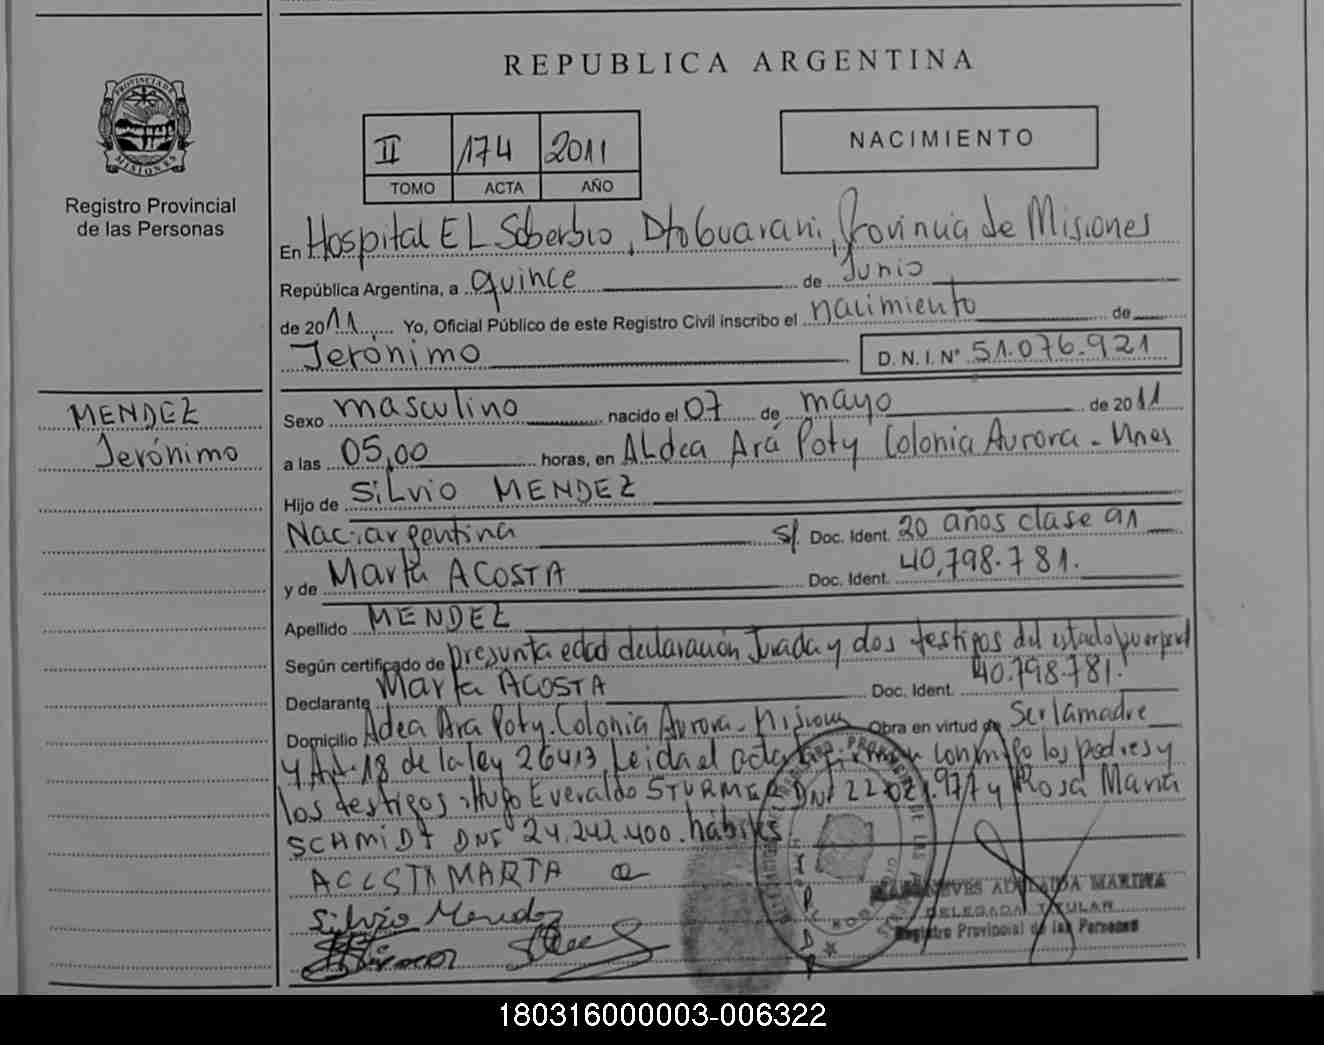 REPUBLICA ARGENTINA
PROVINCIA DE MISIONES
Registro Provincial
de las Personas
II 174 2011
TOMO ACTA AÑO
NACIMIENTO
En Hospital EL Soberbio, Dto Guarani, Provincia de Misiones
República Argentina, a quince de Junio
de 2011 Yo, Oficial Público de este Registro Civil inscribo el nacimiento de
Jerónimo D.N.I.Nº 51.076.921
MENDEZ
Jerónimo
Sexo masculino nacido el 07 de mayo de 2011
a las 05,00 horas, en ALdea Ará Poty Colonia Aurora - Mnes
Hijo de SiLvio MENDEZ
Nac. argentina S/. Doc. Ident. 20 años clase 91
y de Marta ACOSTA Doc. Ident. 40.798.781.
Apellido MENDEZ
Según certificado de presunta edad declaración Jurada y dos testigos del estado puerperal
Declarante Marta ACOSTA Doc. Ident. 40.798.781.
Domicilio Adea Ara Poty. Colonia Aurora - Misiones Obra en virtud de Ser la madre
y Art. 18 de la ley 26413 Leida el acta firman conmigo los padres y
los testigos: Hugo Everaldo STURMER DNI 22.021.977 y Rosa Maria
SCHMIDT DNI 24.242.400. hábiles
ACOSTA MARTA
Silvio Mendez
NEVES ADELAIDA MARINA
DELEGADA TITULAR
Registro Provincial de las Personas
180316000003-006322